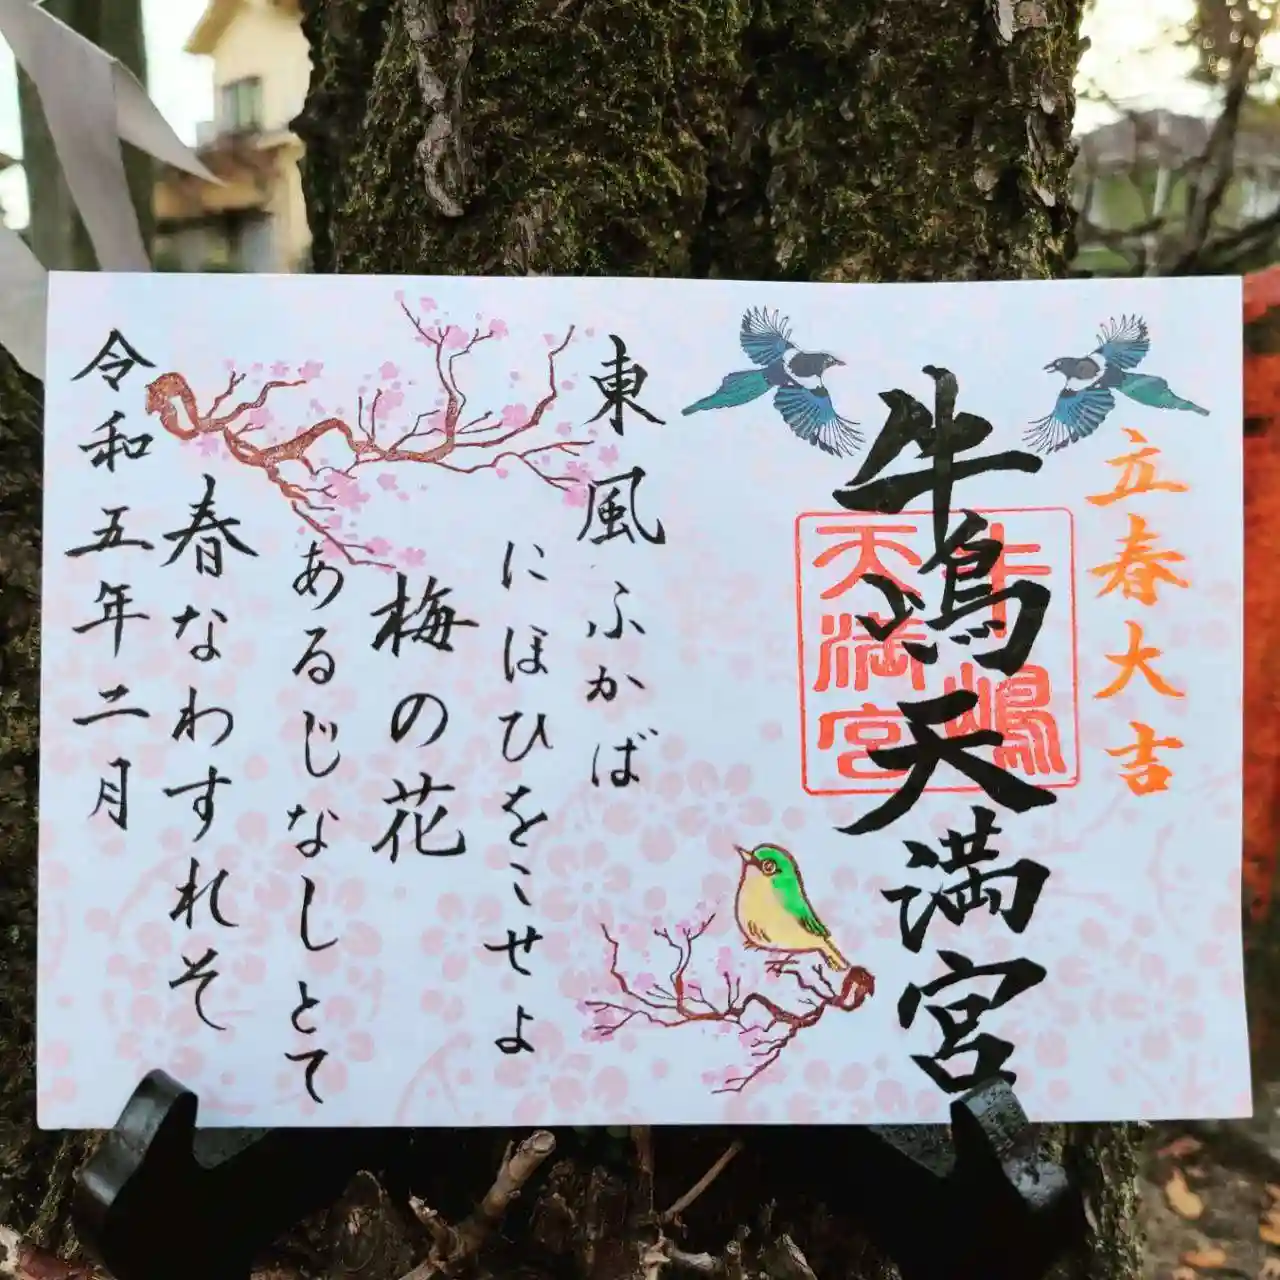 立春大吉
牛嶋天満宮
牛嶋
天満宮
東風ふかば
にほひをこせよ
梅の花
あるじなしとて
春なわすれそ
令和五年二月